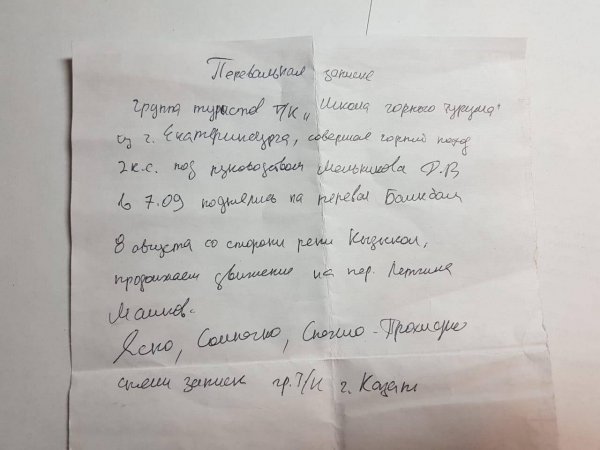 Перевальная записка
Группа туристов Т/К „Школа горного туризма"
из г. Екатеринбурга, совершая горный поход
2 к.с. под руководством Мельникова Д.В
в 7.09 поднялись на перевал
8 августа со стороны реки Кызылкол,
продолжаем движение на пер.
Ясно, Солнечно,
сняли записку гр. Т/К г. Казани